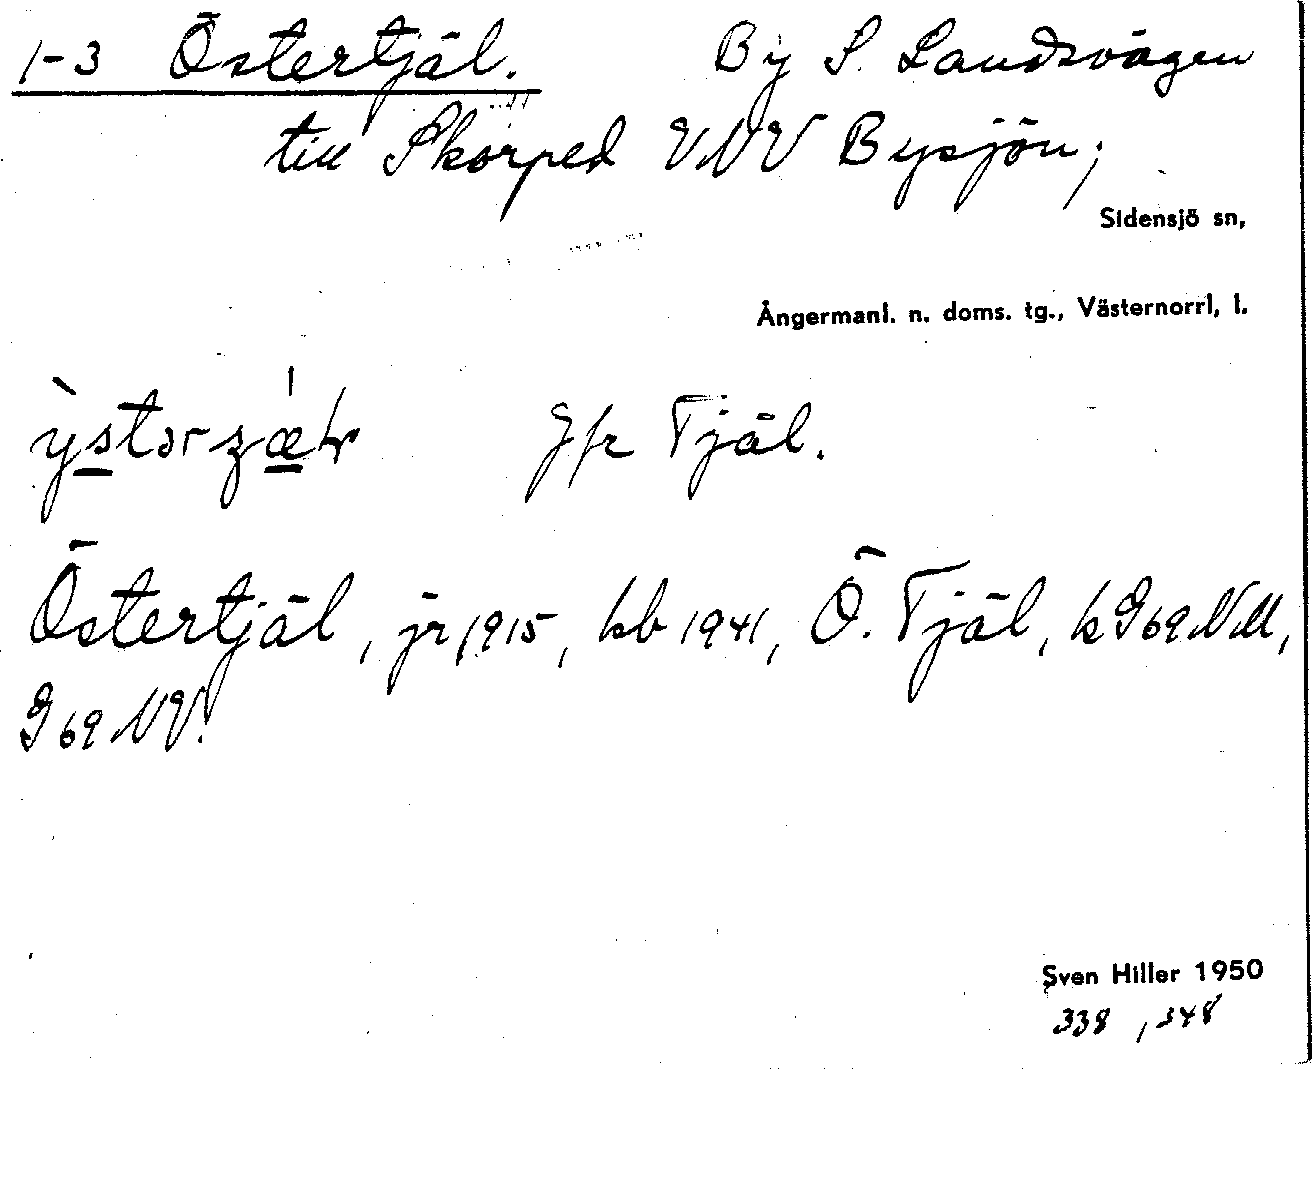 1-3 Östertjäl. By S. Landsvägen
till Skorped VNV Bysjön;
Sidensjö sn,
Ångermanl. n. doms. tg., Västernorrl, l.
Jfr Tjäl.
Östertjäl, jr 1915, kb 1941, Ö. Tjäl, k G69NM,
G69NV.
Sven Hiller 1950
338, 348